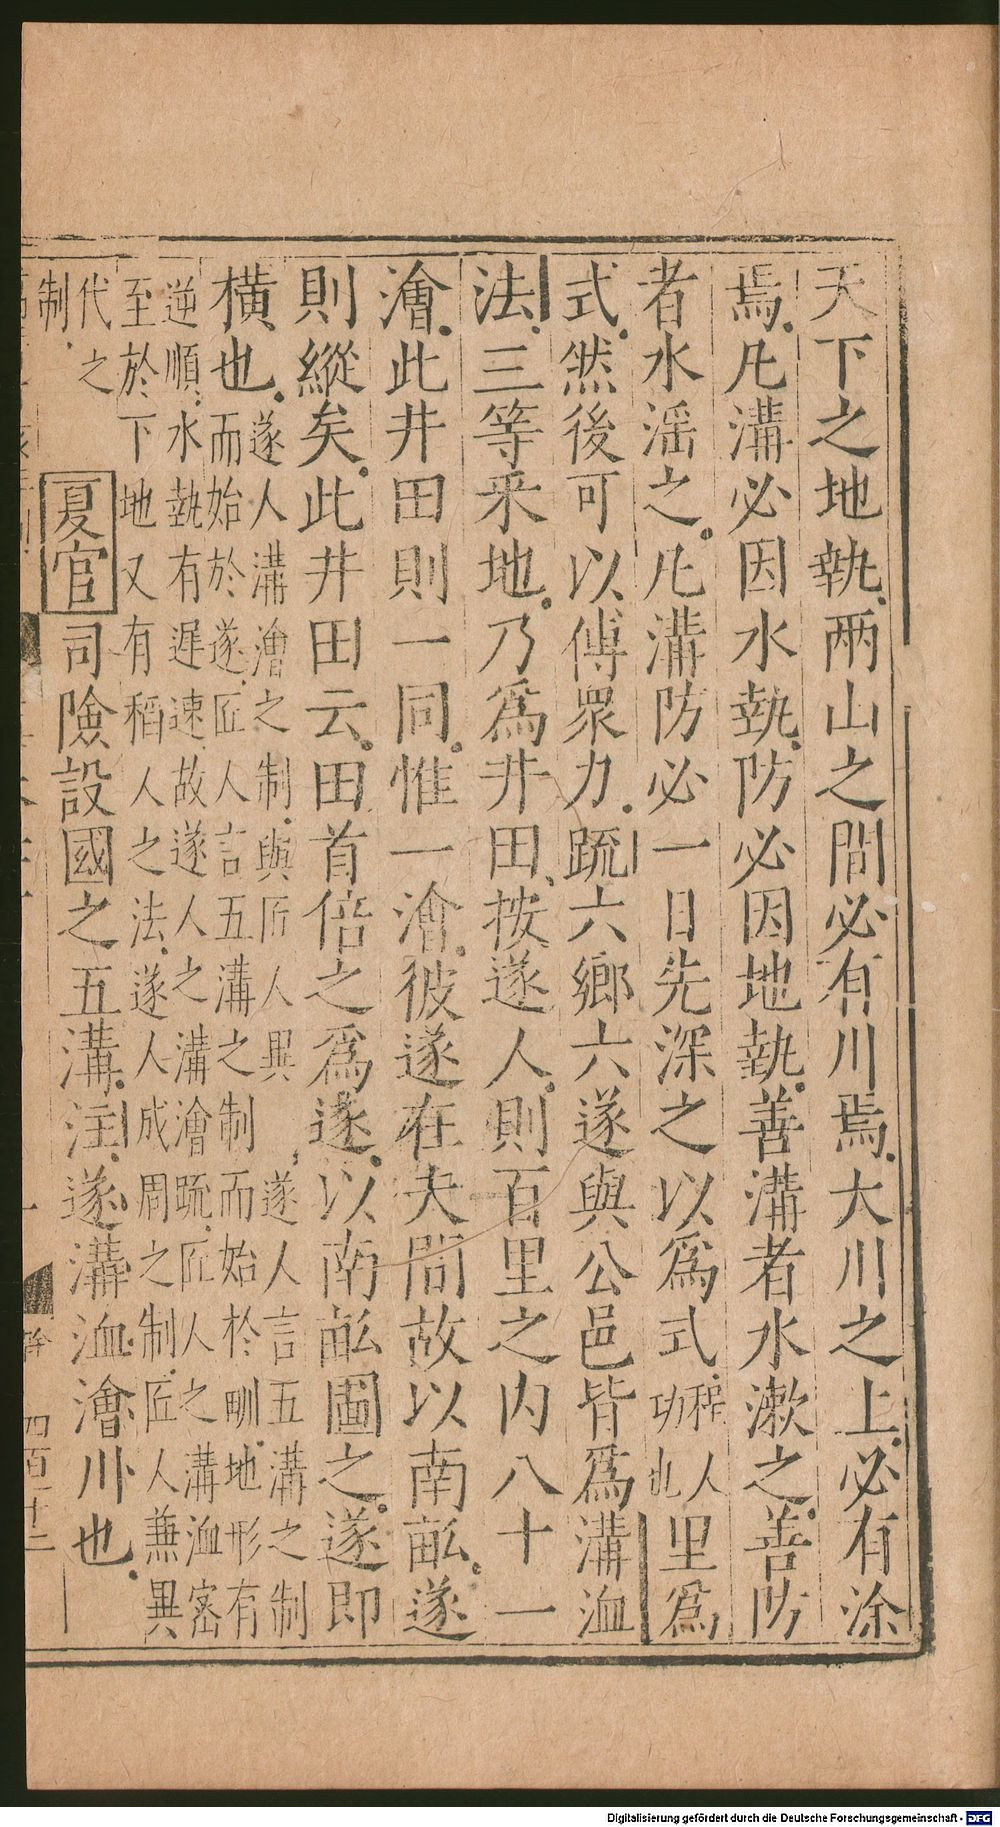 天下之地埶兩山之間必有川焉大川之上必有涂
焉凡溝必因水埶防必因地埶善溝者水漱之善防
者水淫之凡溝防必一日先深之以為式程人功也里為
式然後可以傅衆力疏六鄉六遂與公邑皆為溝洫
法三等采地乃為井田按遂人則百里之内八十一
澮此井田則一同惟一澮彼遂在夫間故以南畝遂
則縱矣此井田云田首倍之為遂以南畝圖之遂即
橫也遂人溝澮之制與匠人異遂人言五溝之制
而始於遂匠人言五溝之制而始於甽地形有
逆順水埶有遲速故遂人之溝澮疏匠人之溝洫宻
至於下地又有稻人之法遂人成周之制匠人兼異
代之
制
夏官司險設國之五溝注遂溝洫澮川也
四百二十二
Digitalisierung gefördert durch die Deutsche Forschungsgemeinschaft - DFG